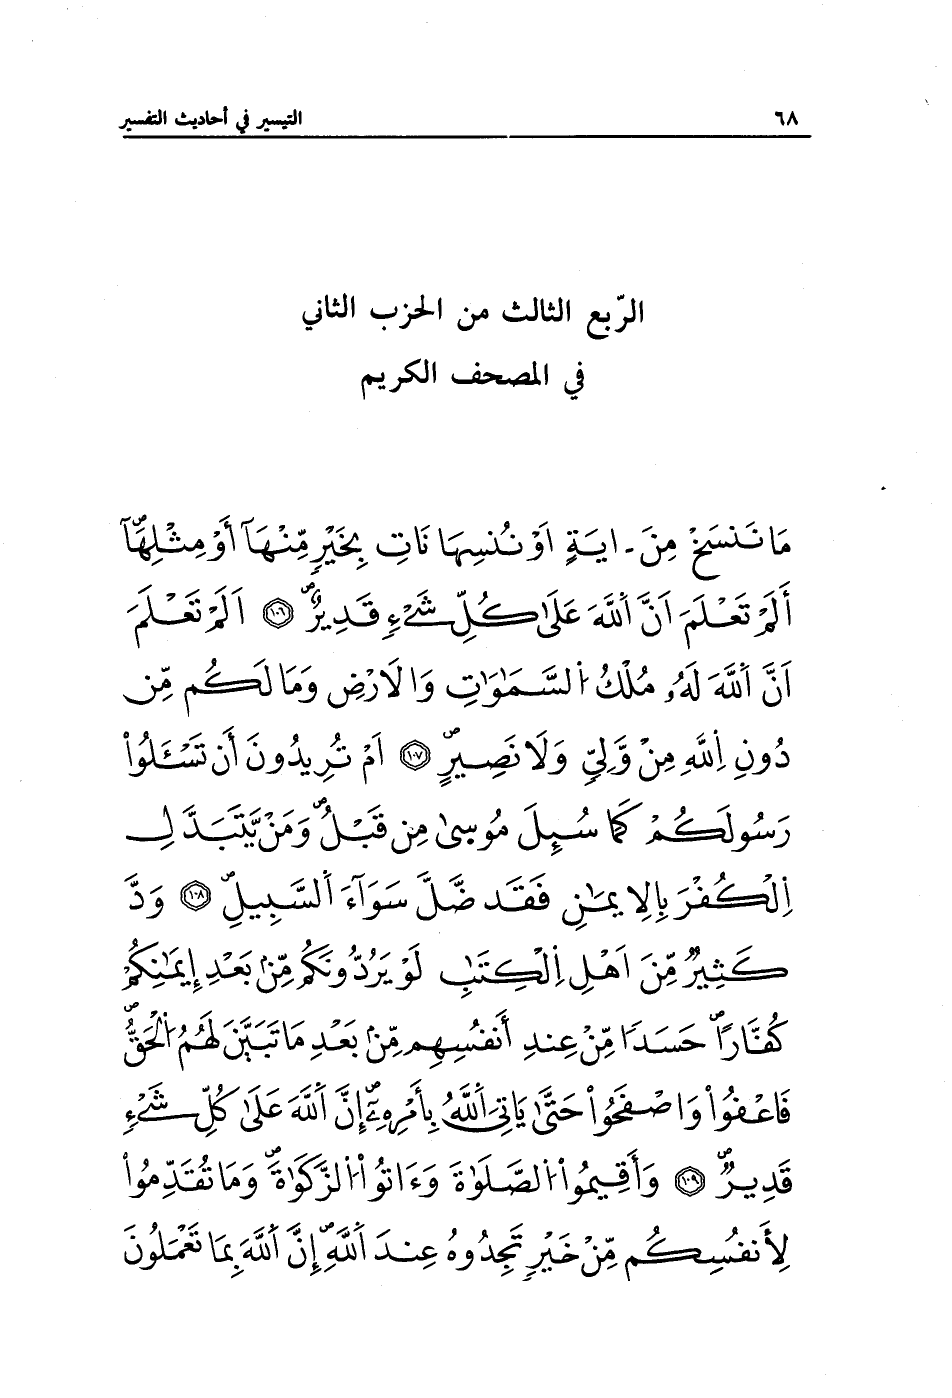 ٦٨ التيسير في أحاديث التفسير
الرّبع الثالث من الحزب الثاني
في المصحف الكريم
مَا نَنسَخْ مِنَ - ايَةٍ اَوْ نُنسِهَا نَاتِ بِخَيْرٍ مِّنْهَآ أَوْ مِثْلِهَآۖ
أَلَمْ تَعْلَمَ اَنَّ اَللَّهَ عَلَىٰ كُلِّ شَےْءٍ قَدِيرٌۖ ١٠٦ اَلَمْ تَعْلَمَ
اَنَّ اَللَّهَ لَهُۥ مُلْكُ اُ۬لسَّمَٰوَٰتِ وَالَارْضِ وَمَا لَكُم مِّن
دُونِ اِ۬للَّهِ مِنْ وَّلِيّٖ وَلَا نَصِيرٍۖ ١٠٧ اَمْ تُرِيدُونَ أَن تَسْـَٔلُواْ
رَسُولَكُمْ كَمَا سُئِلَ مُوسىٰ مِن قَبْلُۖ وَمَنْ يَّتَبَدَّلِ
اِ۬لْكُفْرَ بِالِايمَٰنِ فَقَد ضَّلَّ سَوَآءَ اَ۬لسَّبِيلِۖ ١٠٨ وَدَّ
كَثِيرٌ مِّنَ اَهْلِ اِ۬لْكِتَٰبِ لَوْ يَرُدُّونَكُم مِّنۢ بَعْدِ إِيمَٰنِكُمْ
كُفَّاراًۖ حَسَداً مِّنْ عِندِ أَنفُسِهِم مِّنۢ بَعْدِ مَا تَبَيَّنَ لَهُمُ اُ۬لْحَقُّۖ
فَاعْفُواْ وَاصْفَحُواْ حَتَّىٰ يَاتِيَ اَ۬للَّهُ بِأَمْرِهِۦٓۖ إِنَّ اَ۬للَّهَ عَلَىٰ كُلِّ شَےْءٍ
قَدِيرٌۖ ١٠٩ وَأَقِيمُواْ اُ۬لصَّلَوٰةَ وَءَاتُواْ اُ۬لزَّكَوٰةَۖ وَمَا تُقَدِّمُواْ
لِأَنفُسِكُم مِّنْ خَيْرٍ تَجِدُوهُ عِندَ اَ۬للَّهِۖ إِنَّ اَ۬للَّهَ بِمَا تَعْمَلُونَ